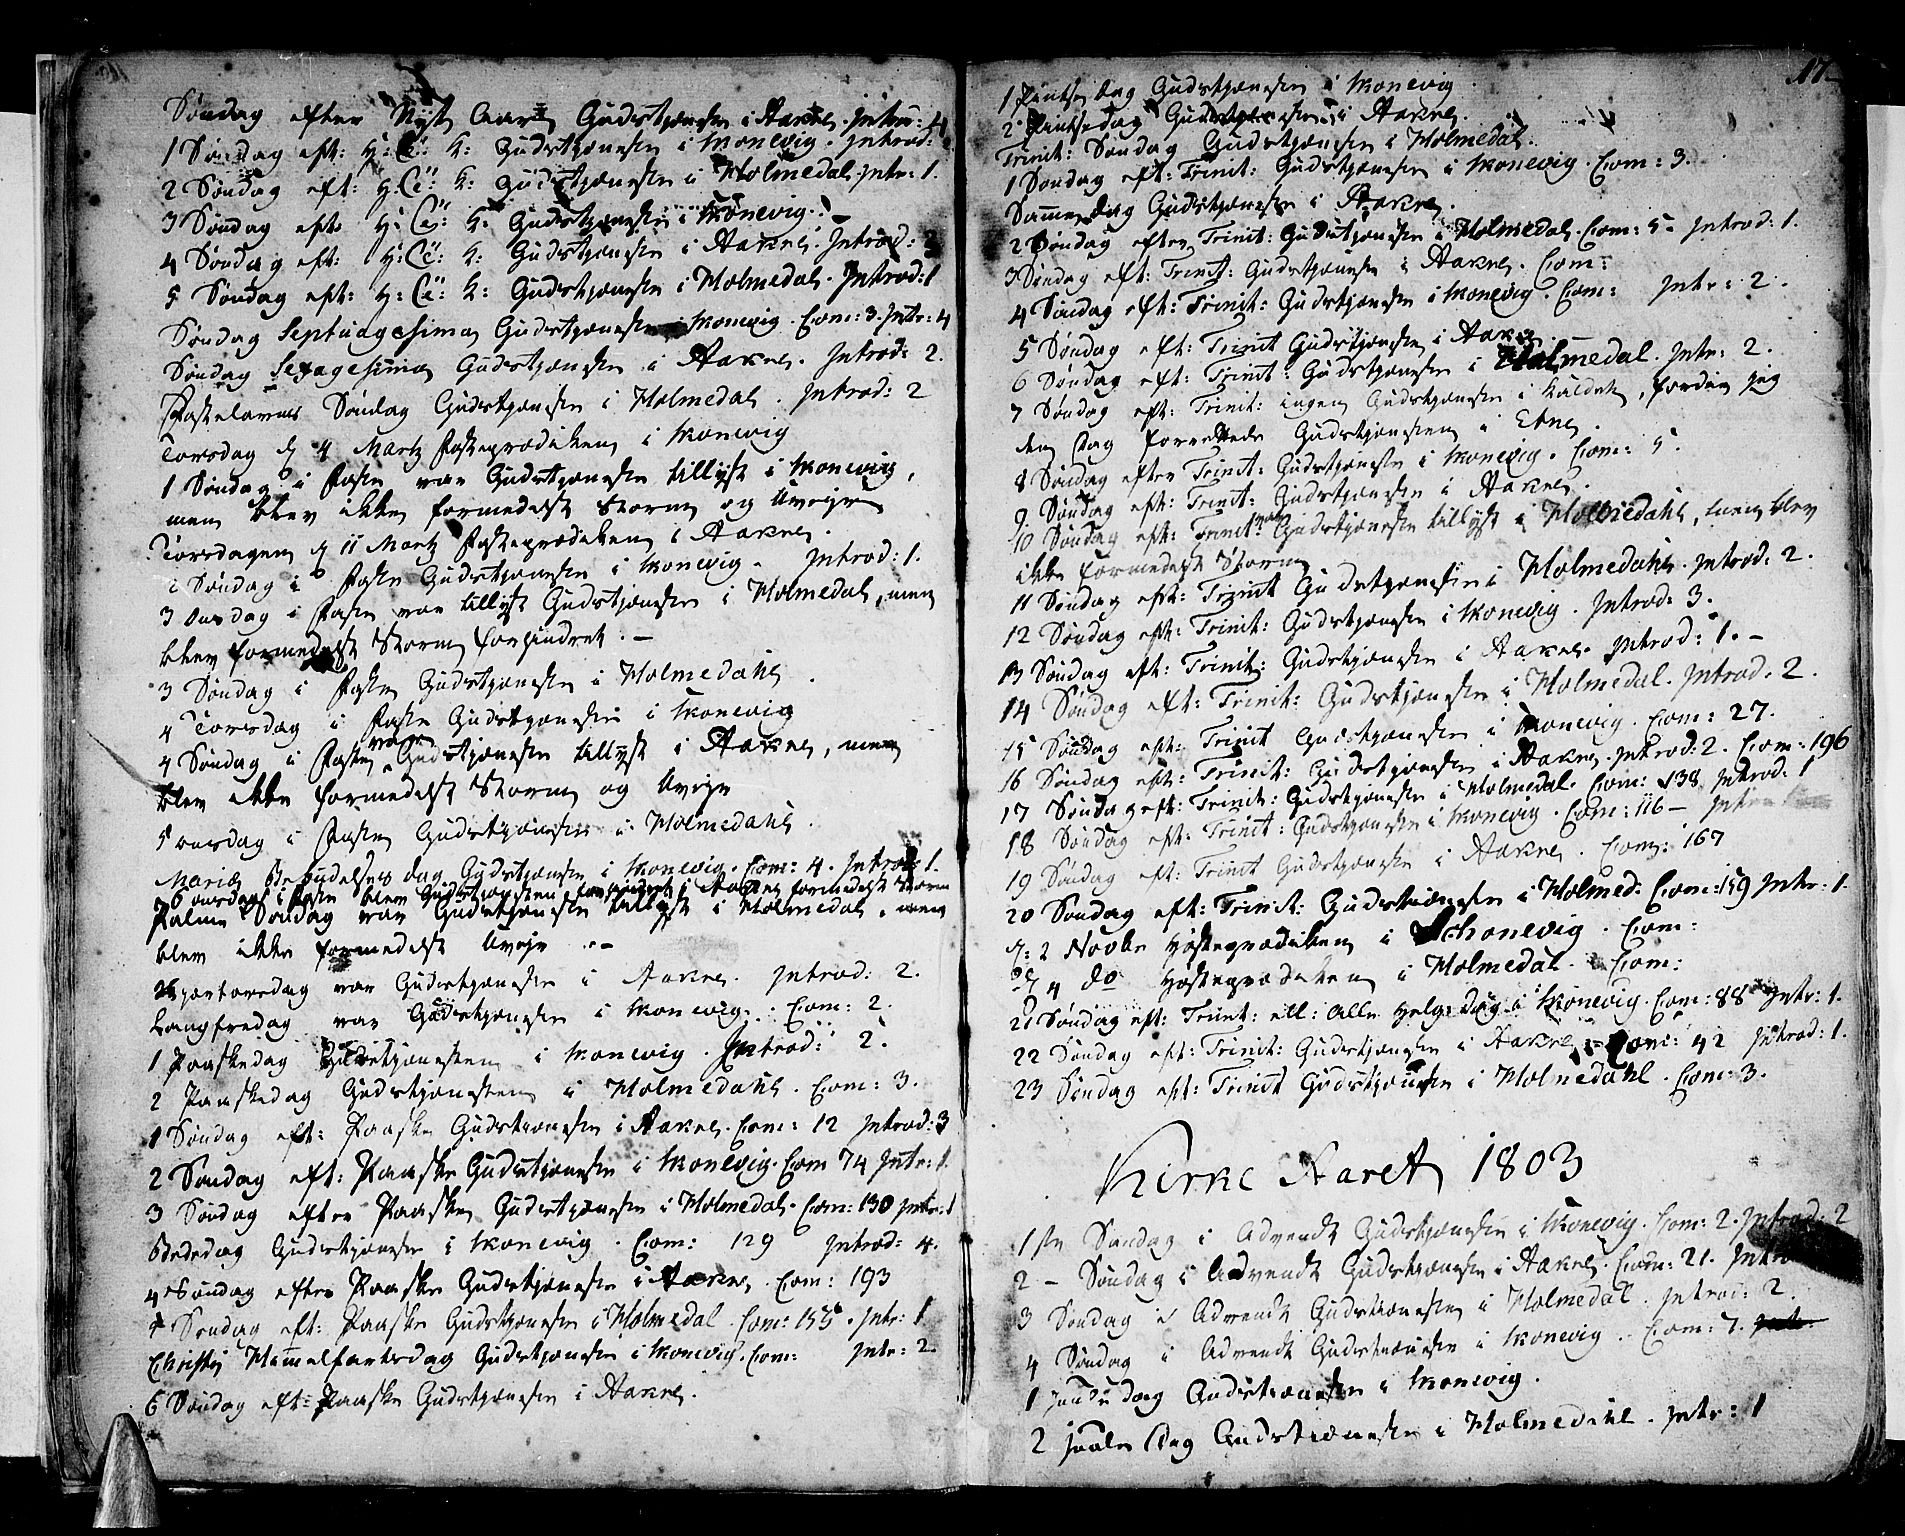 Søndag efter Nyt Aar Gudstjænesten i Aakre. Introd: 4
1 Søndag eft: H: 3 K: Gudstjænesten i Skonevig. Introd:
2 Søndag eft: H: 3 K: Gudstjænesten i Holmedal. Intr: 1.
3 Søndag eft: H: 3 K: Gudstjænesten i Skonevig. –
4 Søndag eft: H: 3 K: Gudstjænesten i Aakre. Introd: 3
5 Søndag eft: H: 3 K: Gudstjænesten i Holmedal. Introd: 1
Søndag Septuagesima Gudstjænesten i Skonevig. Com: 3. Intr: 4
Søndag Sexagesima Gudstjænesten i Aakre. Introd: 2.
Fastelavns Søndag Gudstjænesten i Holmedal. Introd: 2
Torsdag d 4 Martz Fasteprædiken i Skonevig
1 Søndag i Fasten var Gudstjænesten tillyst i Skonevig,
men blev ikke formedelst Storm og Uvejr
Torsdagen d 11 Martz Fasteprædiken i Aakre.
2 Søndag i Fasten Gudstjænesten i Skonevig. Introd: 1.
3 Onsdag i Fasten var tillyst Gudstjænesten i Holmedal, men
blev formedelst Storm forhindret. –
3 Søndag i Fasten Gudstjænesten i Holmedahl.
4 Torsdag i Fasten Gudstjænesten i Skonevig
4 Søndag i Fasten var Gudstjænesten tillyst i Aakre, men
blev ikke formedelst Storm og Uvejr
5 Onsdag i Fasten Gudstjænesten i Holmedahl.
Mariæ Bebudelses dag Gudstjænesten i Skonevig. Com: 4. Introd: 1.
6 onsdag i Fasten blev Gudstjænesten forhindret i Aakre formedelst Storm
Palme Søndag var Gudstjænesten tillyst i Holmedal, men
blev ikke formedelst Uvejr. –
Skjærtorsdag var Gudstjænesten i Aakre. Introd: 2.
Langfredag var Gudstjænesten i Skonevig. Com: 2.
1 Paaskedag Gudstjænesten i Skonevig. Introd: 2.
2 Paaskedag Gudstjænesten i Holmedahl. Com: 3.
1 Søndag eft: Paaske Gudstjænesten i Aakre. Com: 12 Introd: 3
2 Søndag eft: Paaske Gudstjænesten i Skonevig. Com 74 Intr: 1.
3 Søndag efter Paaske Gudstjænesten i Holmedal. Com: 130 Intr: 1
Bededag Gudstjænesten i Skonevig. Com: 129 Introd: 4.
4 Søndag efter Paaske Gudstjænesten i Aakre. Com: 193
5 Søndag eft: Paaske Gudstjænesten i Holmedal. Com: 155. Intr: 1
Christj Himmelfartsdag Gudstjænesten i Skonevig. Com: Intr: 2
6 Søndag eft: Paaske Gudstjænesten i Aakre.
17
1 Pintse dag Gudstjænesten i Skonevig
2 Pintsedag Gudstjænesten i Aakre.
Trinit: Søndag Gudstjænesten i Holmedal.
1 Søndag eft: Trinit: Gudstjænesten i Skonevig. Com: 3.
Samme Dag Gudstjænesten i Aakre.
2 Søndag efter Trinit: Gudstjænesten i Holmedal. Com: 5. Introd: 1.
3 Søndag eft: Trinit: Gudstjænesten i Aakre. Com:
4 Søndag eft: Trinit: Gudstjænesten i Skonevig. Com: Intr: 2.
5 Søndag eft: Trinit Gudstjænesten i Aakre
6 Søndag eft: Trinit: Gudstjænesten i Holmedal. Intr: 2.
7 Søndag eft: Trinit: ingen Gudstjænesten i Kaldet, fordi jeg
den Dag forrettede Gudstjænesten i Etne.
8 Søndag efter Trinit: Gudstjænesten i Skonevig. Com: 5.
9 Søndag eft: Trinit: Gudstjænesten i Aakre.
10 Søndag eft: Trinit var Gudstjænesten tillyst i Holmedahl, men blev
ikke formedelst Storm
11 Søndag eft: Trinit Gudstjænesten i Holmedahl. Introd: 2.
12 Søndag eft: Trinit: Gudstjænesten i Skonevig. Introd: 3.
13 Søndag eft: Trinit: Gudstjænesten i Aakre. Introd: 1. –
14 Søndag eft: Trinit: Gudstjænesten i Holmedal. Introd: 2.
15 Søndag eft: Trinit Gudstjænesten i Skonevig. Com: 27.
16 Søndag eft: Trinit: Gudstjænesten i Aakre. Introd: 2. Com: 196
17 Søndag eft: Trinit: Gudstjænesten i Holmedal. Com: 138 Introd: 1
18 Søndag eft: Trinit: Gudstjænesten i Skonevig. Com: 116 –
19 Søndag eft: Trinit Gudstjænesten i Aakre. Com: 167
20 Søndag eft: Trinit: Gudstjænesten i Holmed: Com: 159 Intr: 1.
d: 2 Novbr Høsteprædiken i Schonevig. Com:
d 4 do Høsteprædiken i Holmedal. Com:
21 Søndag eft: Trinit: ell: alle Helg: dag i Skonevig. Com: 88 Intr: 1.
22 Søndag eft: Trinit: Gudstjænesten i Aakre. Com: 42 Introd: 1.
23 Søndag eft: Trinit Gudstjænesten i Holmedahl. Com: 3.
Kirke Aaret 1803
1ste Søndag i Advendt Gudstjænesten i Skonevig. Com: 2. Introd: 2
2 – Søndag i Advendt Gudstjænesten i Aakre. Com: 21.
3 Søndag i Advendt Gudstjænesten i Holmedal. Introd: 2.
4 Søndag i Advendt Gudstjænesten i Skonevig. Com: 7.
1 Juule dag Gudstjænesten i Skonevig.
2 Juule Dag Gudstjænesten i Holmedahl. Intr: 1